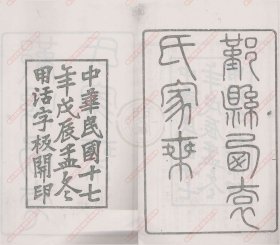 鄞縣西袁
氏家乘
中華民國十七
年戊辰孟冬
用活字板開印